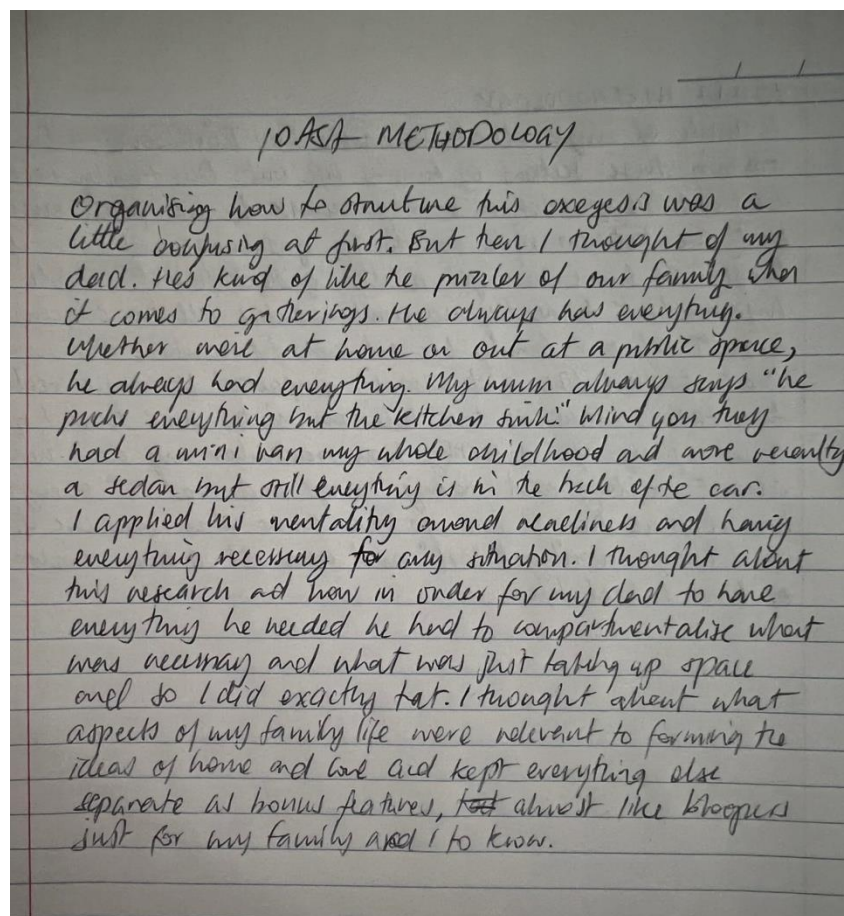 METHODOLOGY
Organising how to structure this exegesis was a
little confusing at first. But then I thought of my
dad. He's kind of like the puzzler of our family when
it comes to gatherings. He always has everything.
Whether we're at home or out at a public space,
he always had everything. My mum always says "he
packs everything but the kitchen sink." Mind you they
had a mini van my whole childhood and more recently
a sedan but still everything is in the back of the car.
I applied his mentality around readiness and having
everything necessary for any situation. I thought about
this research and how in order for my dad to have
everything he needed he had to compartmentalise what
was necessary and what was just taking up space
and so I did exactly that. I thought about what
aspects of my family life were relevant to forming the
ideas of home and love and kept everything else
separate as bonus features, almost like bloopers
just for my family and I to know.